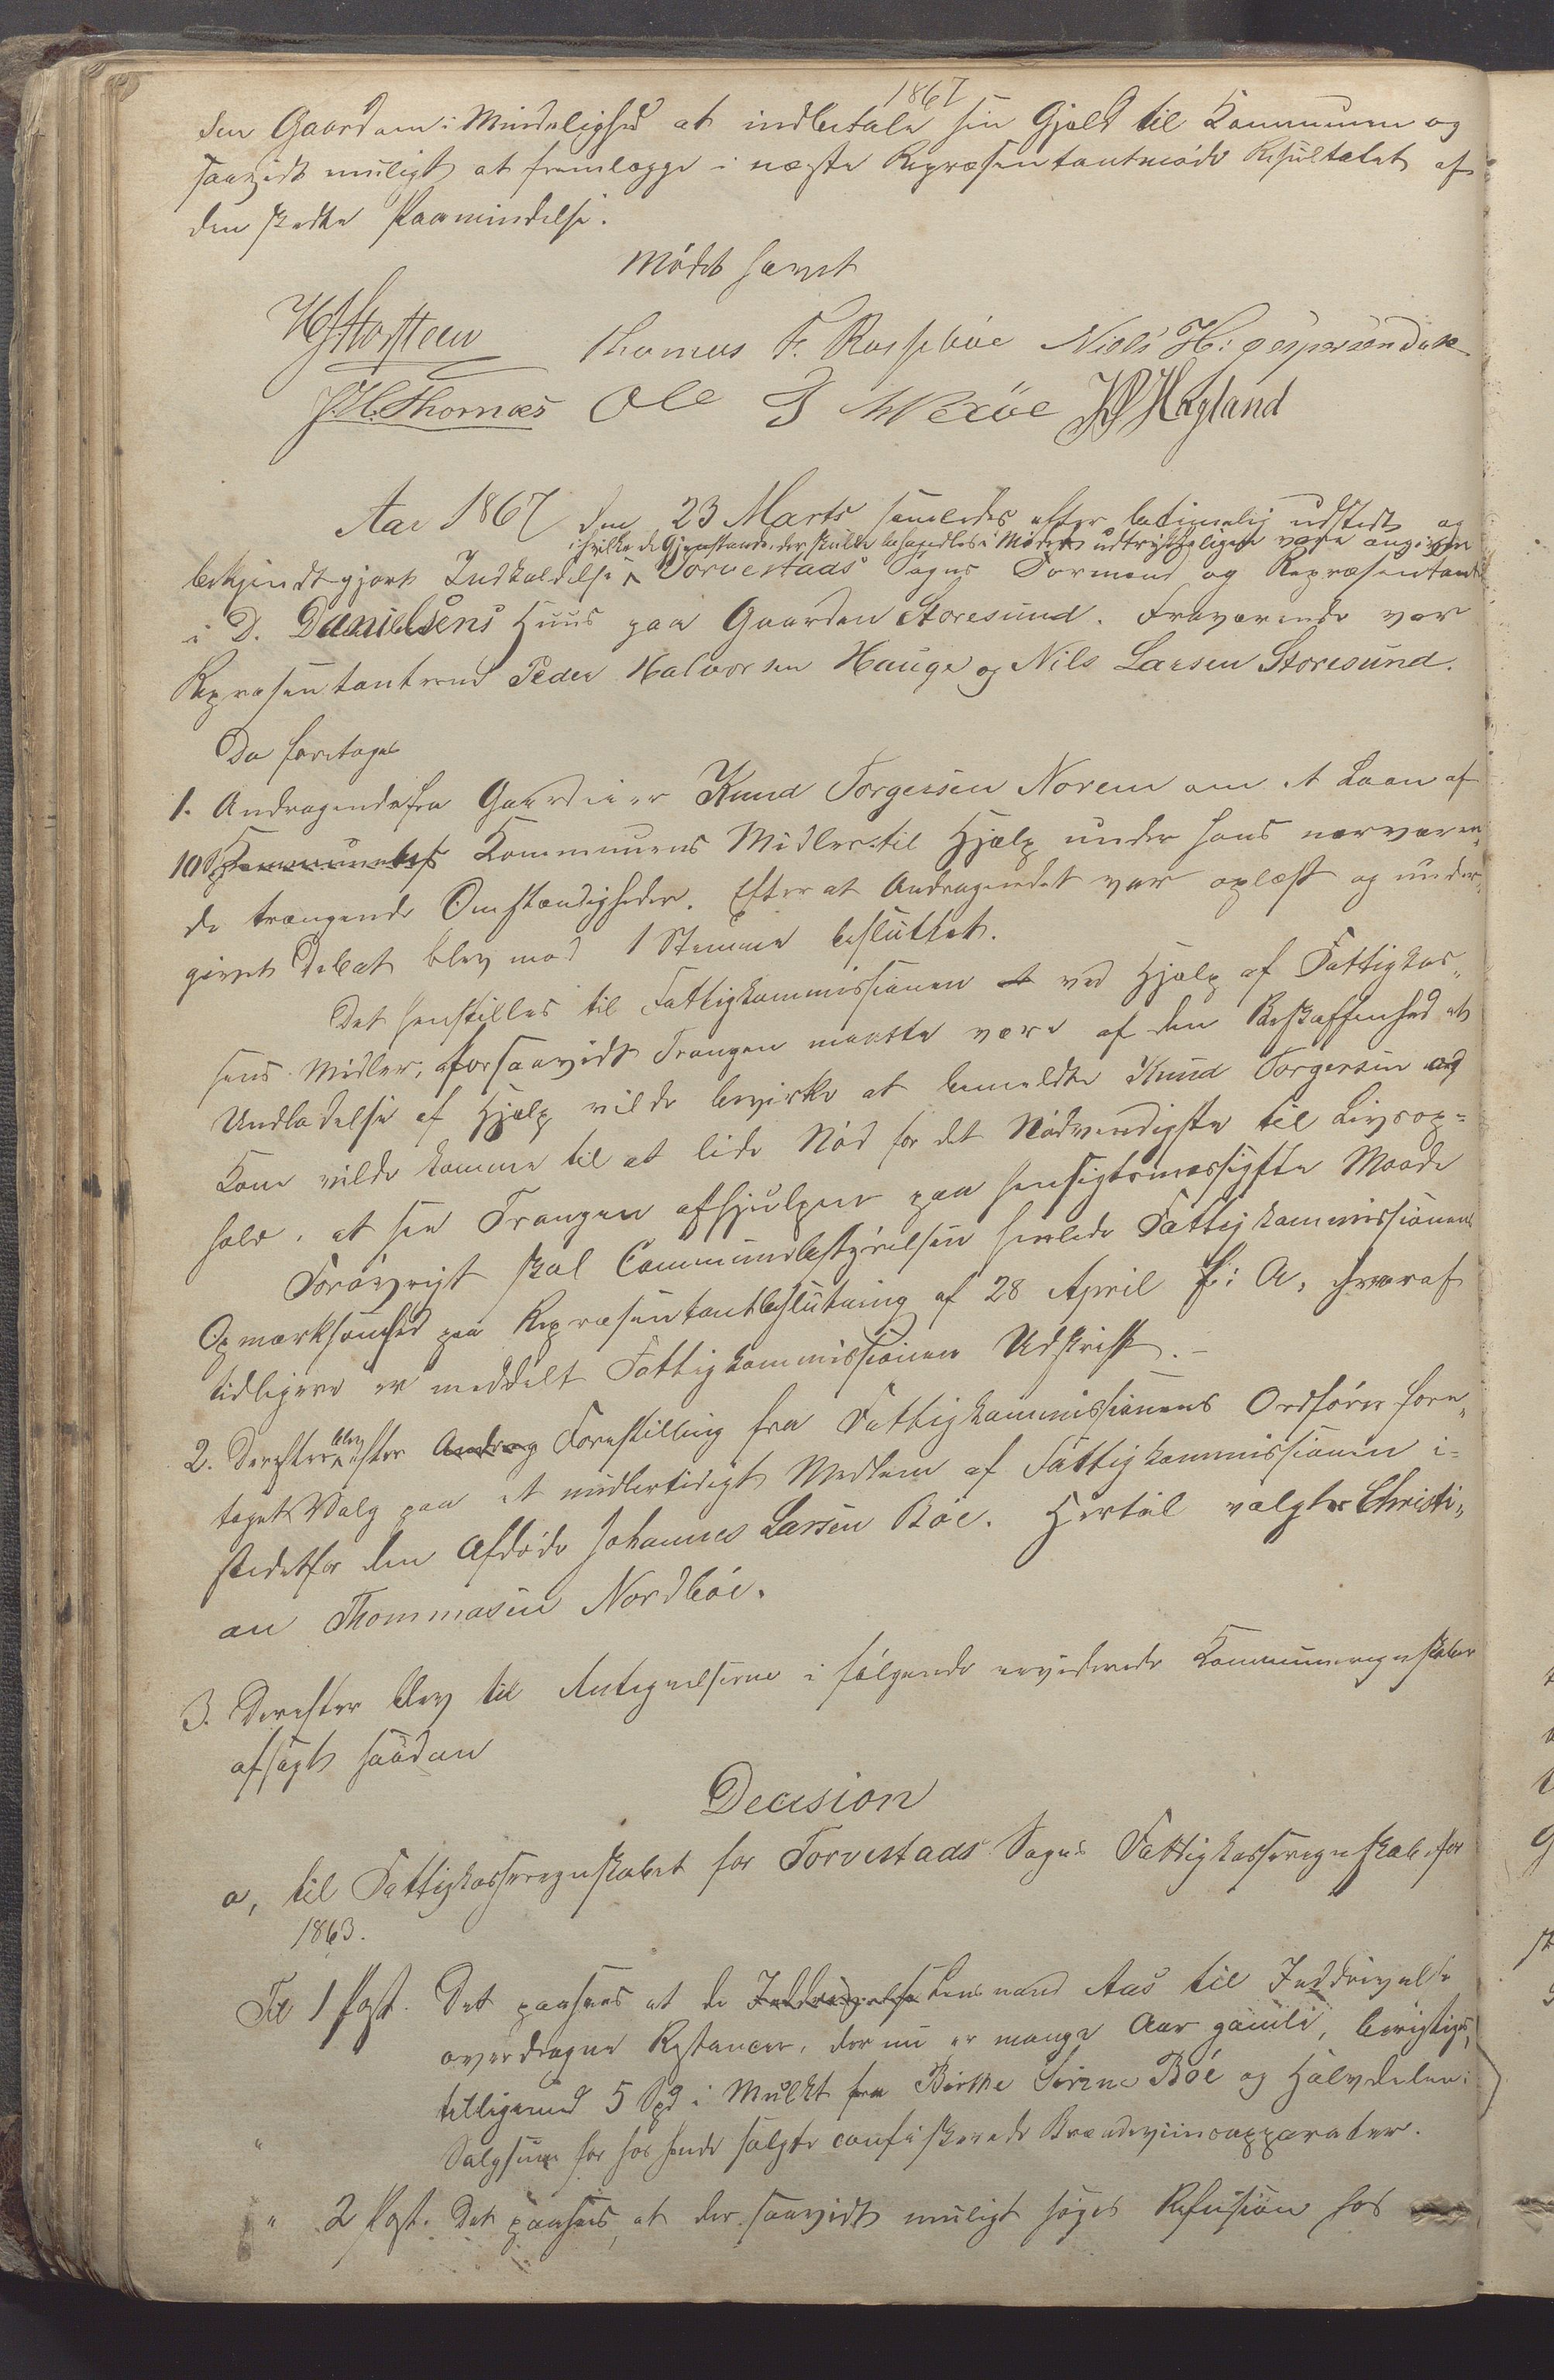 1867
den Gaardam i Mindelighed at indbetale sin Gjæld til Kommunen og
saavidt muligt at fremlægge i næste Repræsentantmøde Resultatet af
den skedte Paamindelse.
Mødet hævet
Thomas F. Rossebøe Niels H: Jespersen
J. H. Thornæs Ole J Wexøe Hagland
Aar 1867 den 23 Marts samledes efter betimelig udstedt og
i hvilke de Gjenstande, der skulde behandles i Mødet, udtrykkeligen vare angivne
bekjendtgjort Indkaldelse Torvestads Sogns Formænd og Repræsentanter
i D. Danielsens Huus paa Gaarden Storesund. Fraværende var
Repræsentanterne Peder Halvorsen Hauge og Nils Larsen Storesund.
Da foretoges
1. Andragende fra Gaardmæn Knud Torgersen Norem om et Laan af
10 Spd Kommunens Midler til Hjælp under hans nærværen„
de trængende Omstændigheder. Efterat Andragendet var oplæst og under„
givet Debat blev mod 1 Stemme besluttet.
Det henstilles til Fattigkommissionen at ved Hjælp af Fattigkas„
sens Midler, forsaavidt Trangen maatte være af den Beskaffenhed at
Undladelse af Hjælp vilde bevirke at bemeldte Knud Torgersen og
Kone vilde komme til at lide Nød for det Nødvendigste til Livsop=
hold, at see Trangen afhjulpen paa hensigtsmæssigste Maade
Forøvrigt skal Communebestyrelsen henlede Fattigkommissionens
Opmærksomhed paa Repræsentantbeslutning af 28 April f: A, hvoraf
tidligere er meddelt Fattigkommissionen Udskrift.-
2. Derefter blev efter Andrag Forestilling fra Fattigkommissionens Ordfører fore„
taget Valg paa et midlertidigt Medlem af Fattigkommissionen i=
stedetfor den Afdøde Johannes Larsen Bøe. Hertil valgtes Christi„
an Thommasen Nordbøe.
3. Derefter blev til Antegnelserne i følgende reviderede Kommuneregnskaber
afsagt saadan
Decision
a, til Fattigkasseregnskabet for Torvestads Sogns Fattigkasseregnskab for
1863.
Til 1 Post. Det paasees at de Inddrivelse Lensmand Aas til Inddrivelse
overdragne Restancer, der nu er mange Aar gamle, berigtiges,
tilligemed 5 Spd i Mulkt fra Birthe Serine Bøe og Halvdelen i
Salgsum for hos hende solgte confiskerede Brændeviinsapparater.
" 2 Post. Det paasees, at der saavidt muligt søges Refusion hos